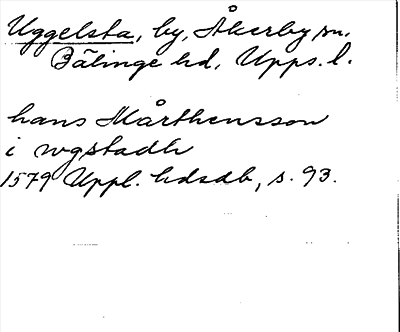 Uggelsta, by, Åkerby sn.
Bälinge hd, Upps. l.
hans Mårthensson
i vgstadh
1579 Uppl. hdsdb, s. 93.